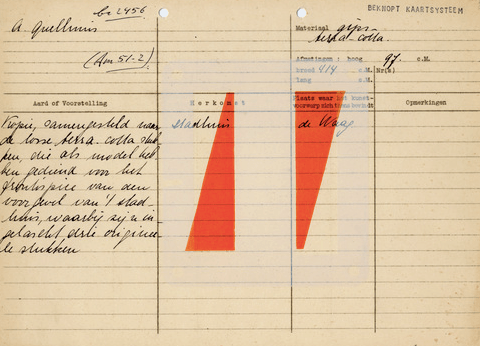 br 2456
BEKNOPT KAARTSYSTEEM
A Quellinus
(Am 51-2)
Materiaal gips-
terra-cotta.
Afmetingen: hoog 97. c.M.
breed 414 c.M. Nr(s)
lang c.M.
Aard of Voorstelling
Herkomst
Plaats waar het kunst-
voorwerp zich thans bevindt
Opmerkingen
Kopie, samengesteld naar
de losse terra-cotta stuk-
ken, die als model heb-
ben gediend voor het
frontispice van den
voorgevel van 't stad-
huis, waarbij zijn in-
gelascht drie origineele
stukken
stadhuis
de Waag